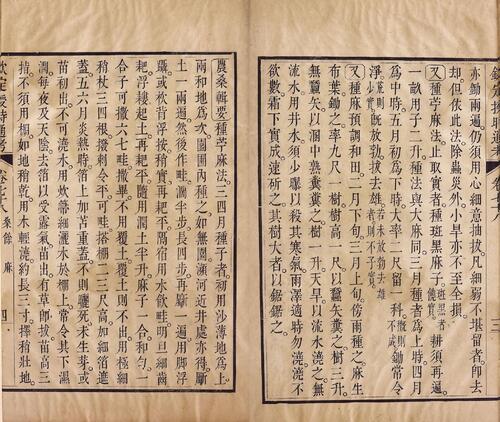 亦鋤兩遍仍須用心細意抽拔。凡細弱不堪留者卽去
却。但依此法除蟲災外。小旱亦不至全損。
又種苧麻法。止取實者種斑黑麻子。斑黑者饒實。耕須再遍。
一畝用子二升。種法與大麻同。三月種者為上時。四月
為中時。五月初為下時。大率二尺留一科。穊則不成。鋤常令
淨。荒則少實。旣放勃拔去雄。若未放勃去雄者則不子實。
又種麻預調和田。二月下旬三月上旬傍雨種之。麻生
布葉鋤之。率九尺一樹。樹高一尺。以蠶矢糞之。樹三升
無蠶矢以溷中熟糞糞之。樹一升。天旱以流水澆之。無
流水用井水。須少曝以殺其寒氣。雨澤適時勿澆。澆不
欲數。霜下實成。速斫之。其樹大者以鋸鋸之。
農桑輯要種苧麻法。三四月種子者初用沙薄地為上。
兩和地為次。園圃內種之。如無園瀕河近井處亦得。斸
土一兩遍。然後作畦濶半步長四步。再斸一遍。用脚浮
躡或杴背浮按稍實再耙平。隔宿用水飲畦。明旦細齒
耙浮耬起土。再耙平。隨用潤土半升。麻子一合和勻。一
合子可撒六七畦。撒畢不用覆土。覆土則不出。用極細
梢杖三四根。撥剌令平。可畦搭棚二三尺高。加細箔遮
蓋。五六月炎熱時箔上加苫重蓋。不則曬死。未生芽或
苗初出。不可澆水。用炊箒細灑水於棚上。常令其下濕
潤。每夜及天陰去箔以受露氣。苗出有草卽拔。苗高三
指。不須用棚。如地稍乾用水輕澆。約長三寸。擇稍壯地。
欽定授時通考 卷七十八 桑餘 麻 四